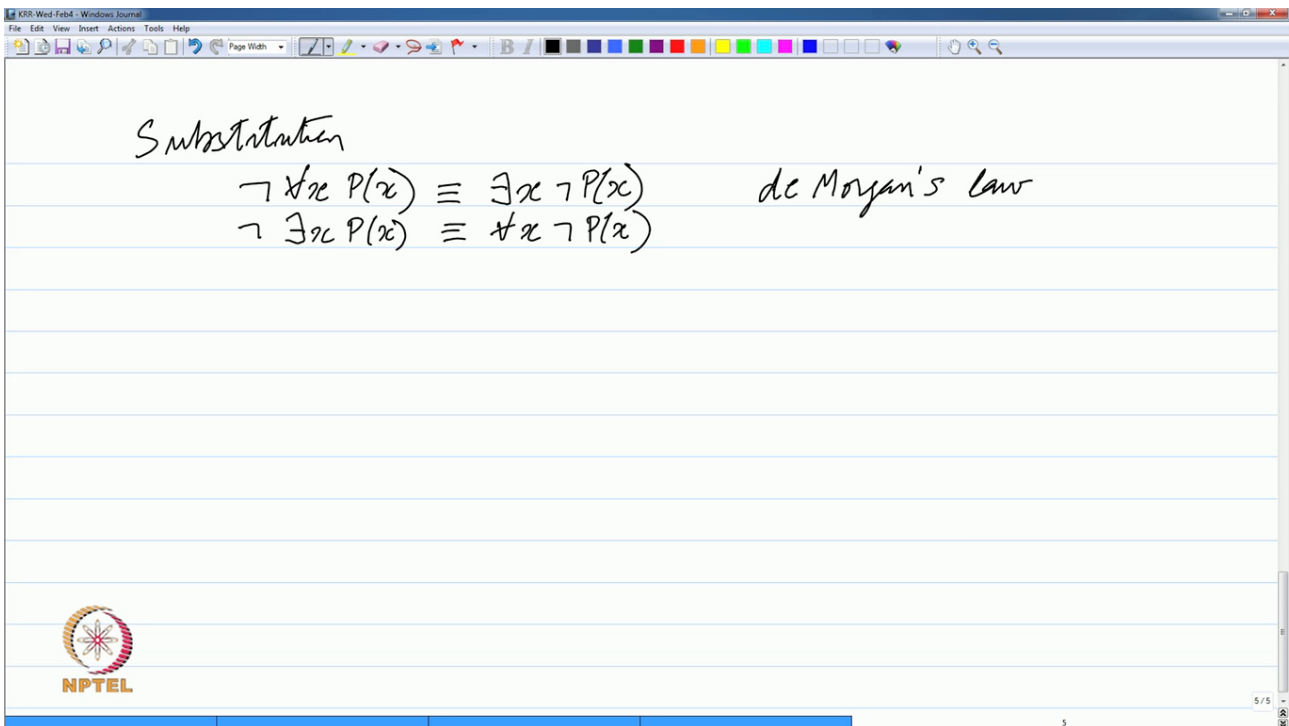 KRR-Wed-Feb4 - Windows Journal
File Edit View Insert Actions Tools Help
Page Width
B I
Substitution
¬ ∀x P(x) ≡ ∃x ¬P(x) de Morgan's law
¬ ∃x P(x) ≡ ∀x ¬P(x)
NPTEL
5/5
5